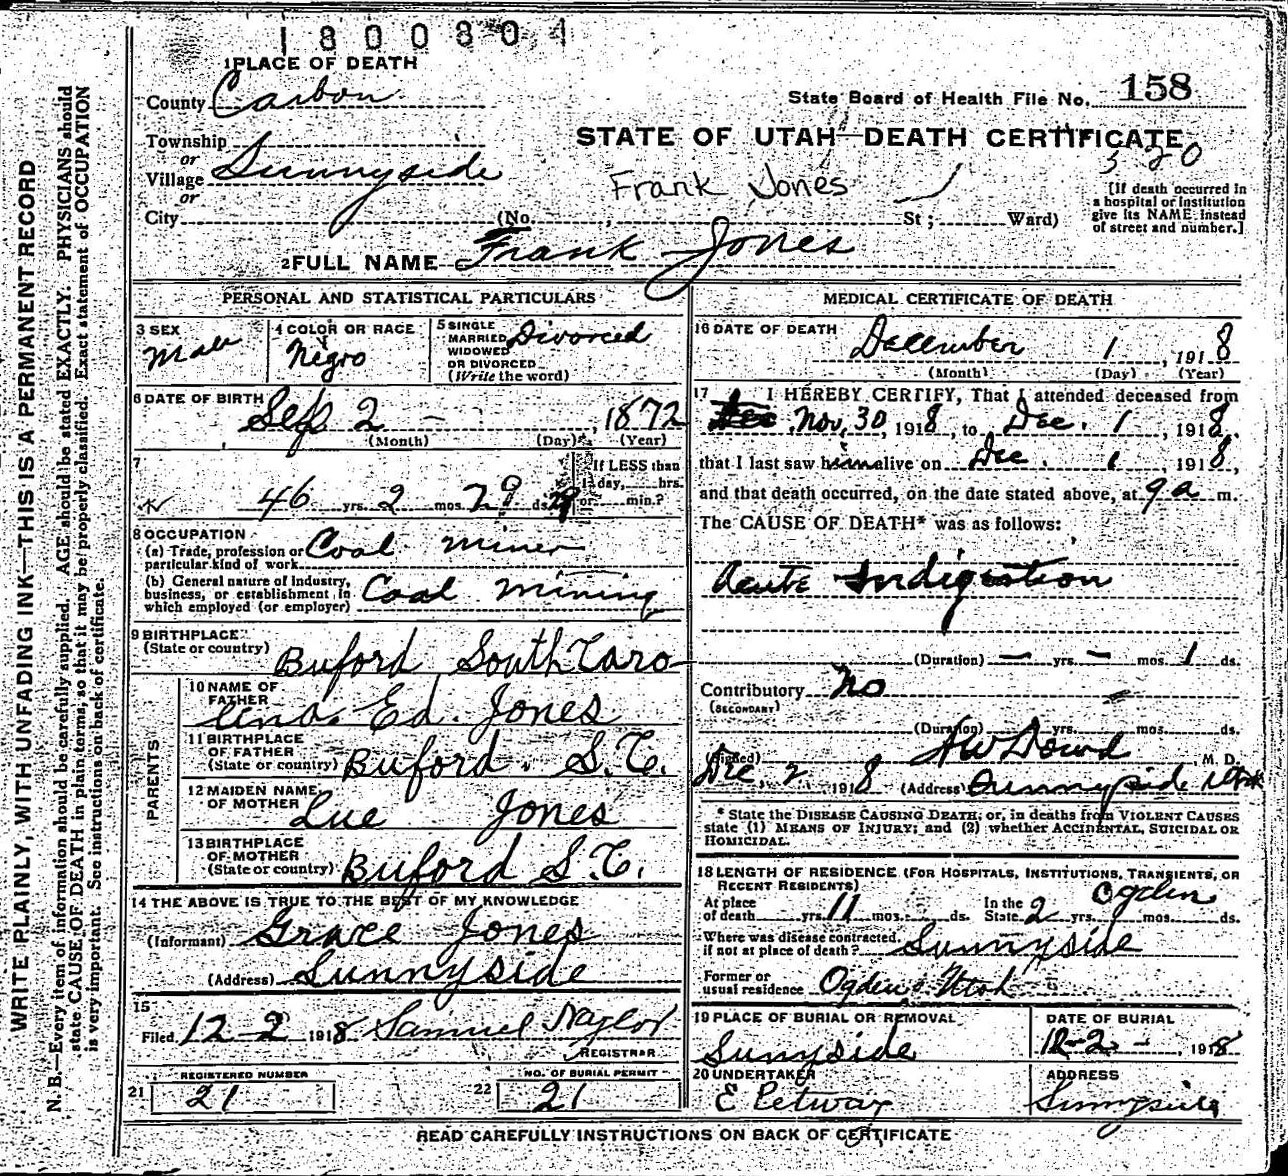 1800804
1 PLACE OF DEATH
County Carbon
State Board of Health File No. 158
Township
or
Village Sunnyside
or
STATE OF UTAH—DEATH CERTIFICATE
520
Frank Jones
City (No. , St; Ward)
[If death occurred in
a hospital or institution
give its NAME instead
of street and number.]
2 FULL NAME Frank Jones
PERSONAL AND STATISTICAL PARTICULARS
3 SEX
Male
4 COLOR OR RACE
Negro
5 SINGLE
MARRIED
WIDOWED
OR DIVORCED
(Write the word)
Divorced
6 DATE OF BIRTH Sep 2 - , 1872
(Month) (Day) (Year)
7
46 yrs. 2 mos. 29 ds.
If LESS than
1 day, hrs.
or min.?
8 OCCUPATION
(a) Trade, profession or
particular kind of work Coal miner
(b) General nature of industry,
business, or establishment in
which employed (or employer) Coal Mining
9 BIRTHPLACE
(State or country) Buford South Caro
PARENTS
10 NAME OF
FATHER Ed. Jones
11 BIRTHPLACE
OF FATHER
(State or country) Buford. S.C.
12 MAIDEN NAME
OF MOTHER Lue Jones
13 BIRTHPLACE
OF MOTHER
(State or country) Buford S.C.
14 THE ABOVE IS TRUE TO THE BEST OF MY KNOWLEDGE
(Informant) Grace Jones
(Address) Sunnyside
15
Filed 12-2 1918 Samuel Naylor
REGISTRAR
21 REGISTERED NUMBER
21
22 NO. OF BURIAL PERMIT
21
MEDICAL CERTIFICATE OF DEATH
16 DATE OF DEATH December 1, 1918
(Month) (Day) (Year)
17 I HEREBY CERTIFY, That I attended deceased from
Dec Nov. 30, 1918, to Dec. 1, 1918,
that I last saw him alive on Dec. 1, 1918,
and that death occurred, on the date stated above, at 9 a m.
The CAUSE OF DEATH* was as follows:
Acute Indigestion
(Duration) — yrs. — mos. 1 ds.
Contributory No
(SECONDARY)
(Duration) yrs. mos. ds.
(Signed) HW Dowd, M. D.
Dec. 2. 1918 (Address) Sunnyside Utah
* State the DISEASE CAUSING DEATH; or, in deaths from VIOLENT CAUSES
state (1) MEANS OF INJURY; and (2) whether ACCIDENTAL, SUICIDAL OR
HOMICIDAL.
18 LENGTH OF RESIDENCE (FOR HOSPITALS, INSTITUTIONS, TRANSIENTS, OR
RECENT RESIDENTS) Ogden
At place
of death yrs. 11 mos. ds. In the
State 2 yrs. mos. ds.
Where was disease contracted
if not at place of death? Sunnyside
Former or
usual residence Ogden, Utah
19 PLACE OF BURIAL OR REMOVAL
Sunnyside
DATE OF BURIAL
12-2-, 1918
20 UNDERTAKER
E Petway
ADDRESS
Sunnyside
READ CAREFULLY INSTRUCTIONS ON BACK OF CERTIFICATE
WRITE PLAINLY, WITH UNFADING INK—THIS IS A PERMANENT RECORD
N. B.—Every item of information should be carefully supplied. AGE should be stated EXACTLY. PHYSICIANS should
state CAUSE OF DEATH in plain terms, so that it may be properly classified. Exact statement of OCCUPATION
is very important. See instructions on back of certificate.